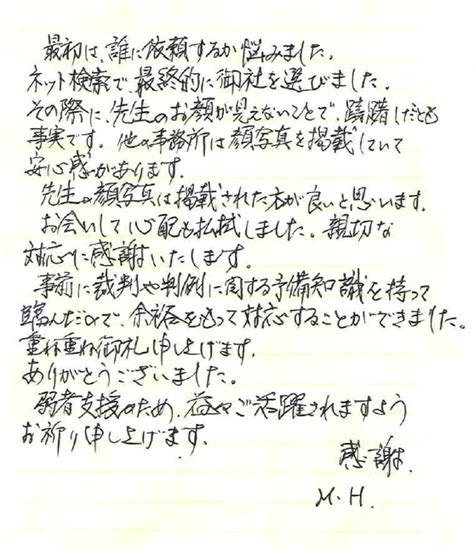 最初は、誰に依頼するか悩みました。
ネット検索で、最終的に御社を選びました。
その際に、先生のお顔が見えないことで、躊躇したことも
事実です。他の事務所は顔写真を掲載していて
安心感があります。
先生の顔写真は掲載された方が良いと思います。
お会いして心配も払拭しました。親切な
対応に感謝いたします。
事前に裁判や判例に関する予備知識を持って
臨んだので、余裕をもって対応することができました。
重ね重ね御礼申し上げます。
ありがとうございました。
弱者支援のため、益々ご活躍されますよう
お祈り申し上げます。
感謝.
M.H.